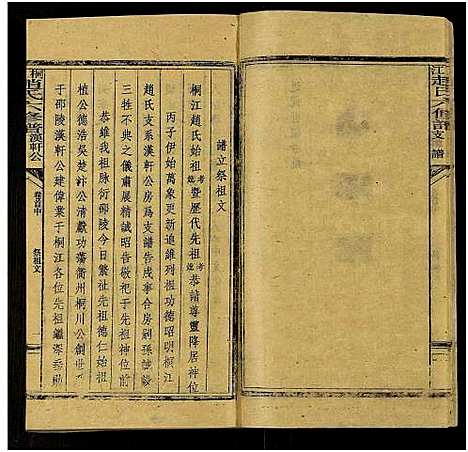 江趙氏六修譜支譜
譜立祭祖文
桐江趙氏始祖考妣暨歷代先祖考妣恭請尊靈降居神位
丙子伊始萬象更新追維列祖功德昭明桐江
趙氏支系漢軒公房爲支譜告成事合房嗣孫誠
三牲不典之儀肅展精誠昭告敬祀于先祖神位前
恭維我祖脉衍邵陵今日繁祉先祖德仁始祖
植公德浩吳楚汴公清獻功藻衢州桐川公創
于邵陵漢軒公建偉業于桐江各位先祖繼
桐趙氏六修譜漢軒公
卷首中
祭祖文